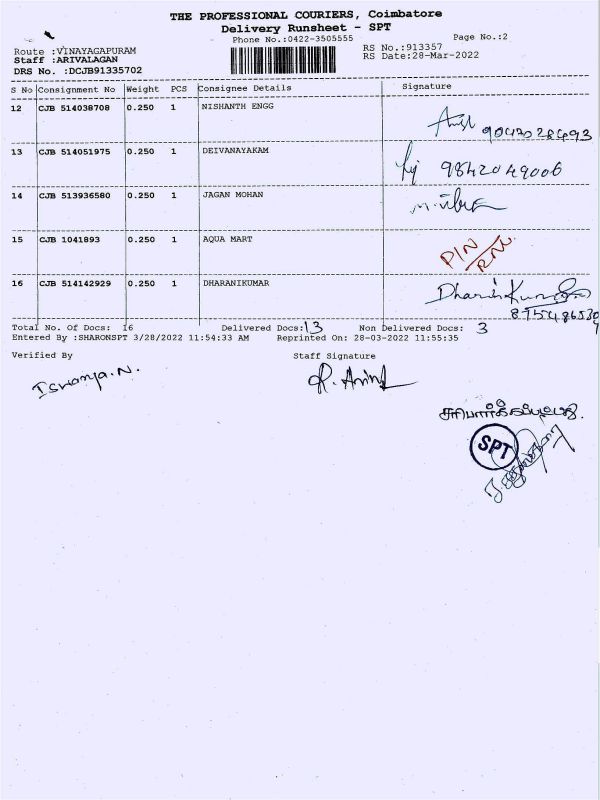 THE PROFESSIONAL COURIERS, Coimbatore
Delivery Runsheet - SPT
Phone No.:0422-3505555 Page No.:2
Route :VINAYAGAPURAM RS No.:913357
Staff :ARIVALAGAN RS Date:28-Mar-2022
DRS No. :DCJB91335702
S No Consignment No Weight PCS Consignee Details Signature
12 CJB 514038708 0.250 1 NISHANTH ENGG
9042028493
13 CJB 514051975 0.250 1 DEIVANAYAKAM
9842049006
14 CJB 513936580 0.250 1 JAGAN MOHAN
15 CJB 1041893 0.250 1 AQUA MART
PIN
RNL
16 CJB 514142929 0.250 1 DHARANIKUMAR
Total No. Of Docs: 16 Delivered Docs: 13 Non Delivered Docs: 3
Entered By :SHARONSPT 3/28/2022 11:54:33 AM Reprinted On: 28-03-2022 11:55:35
Verified By Staff Signature
சரிபார்க்கப்பட்டது.
SPT